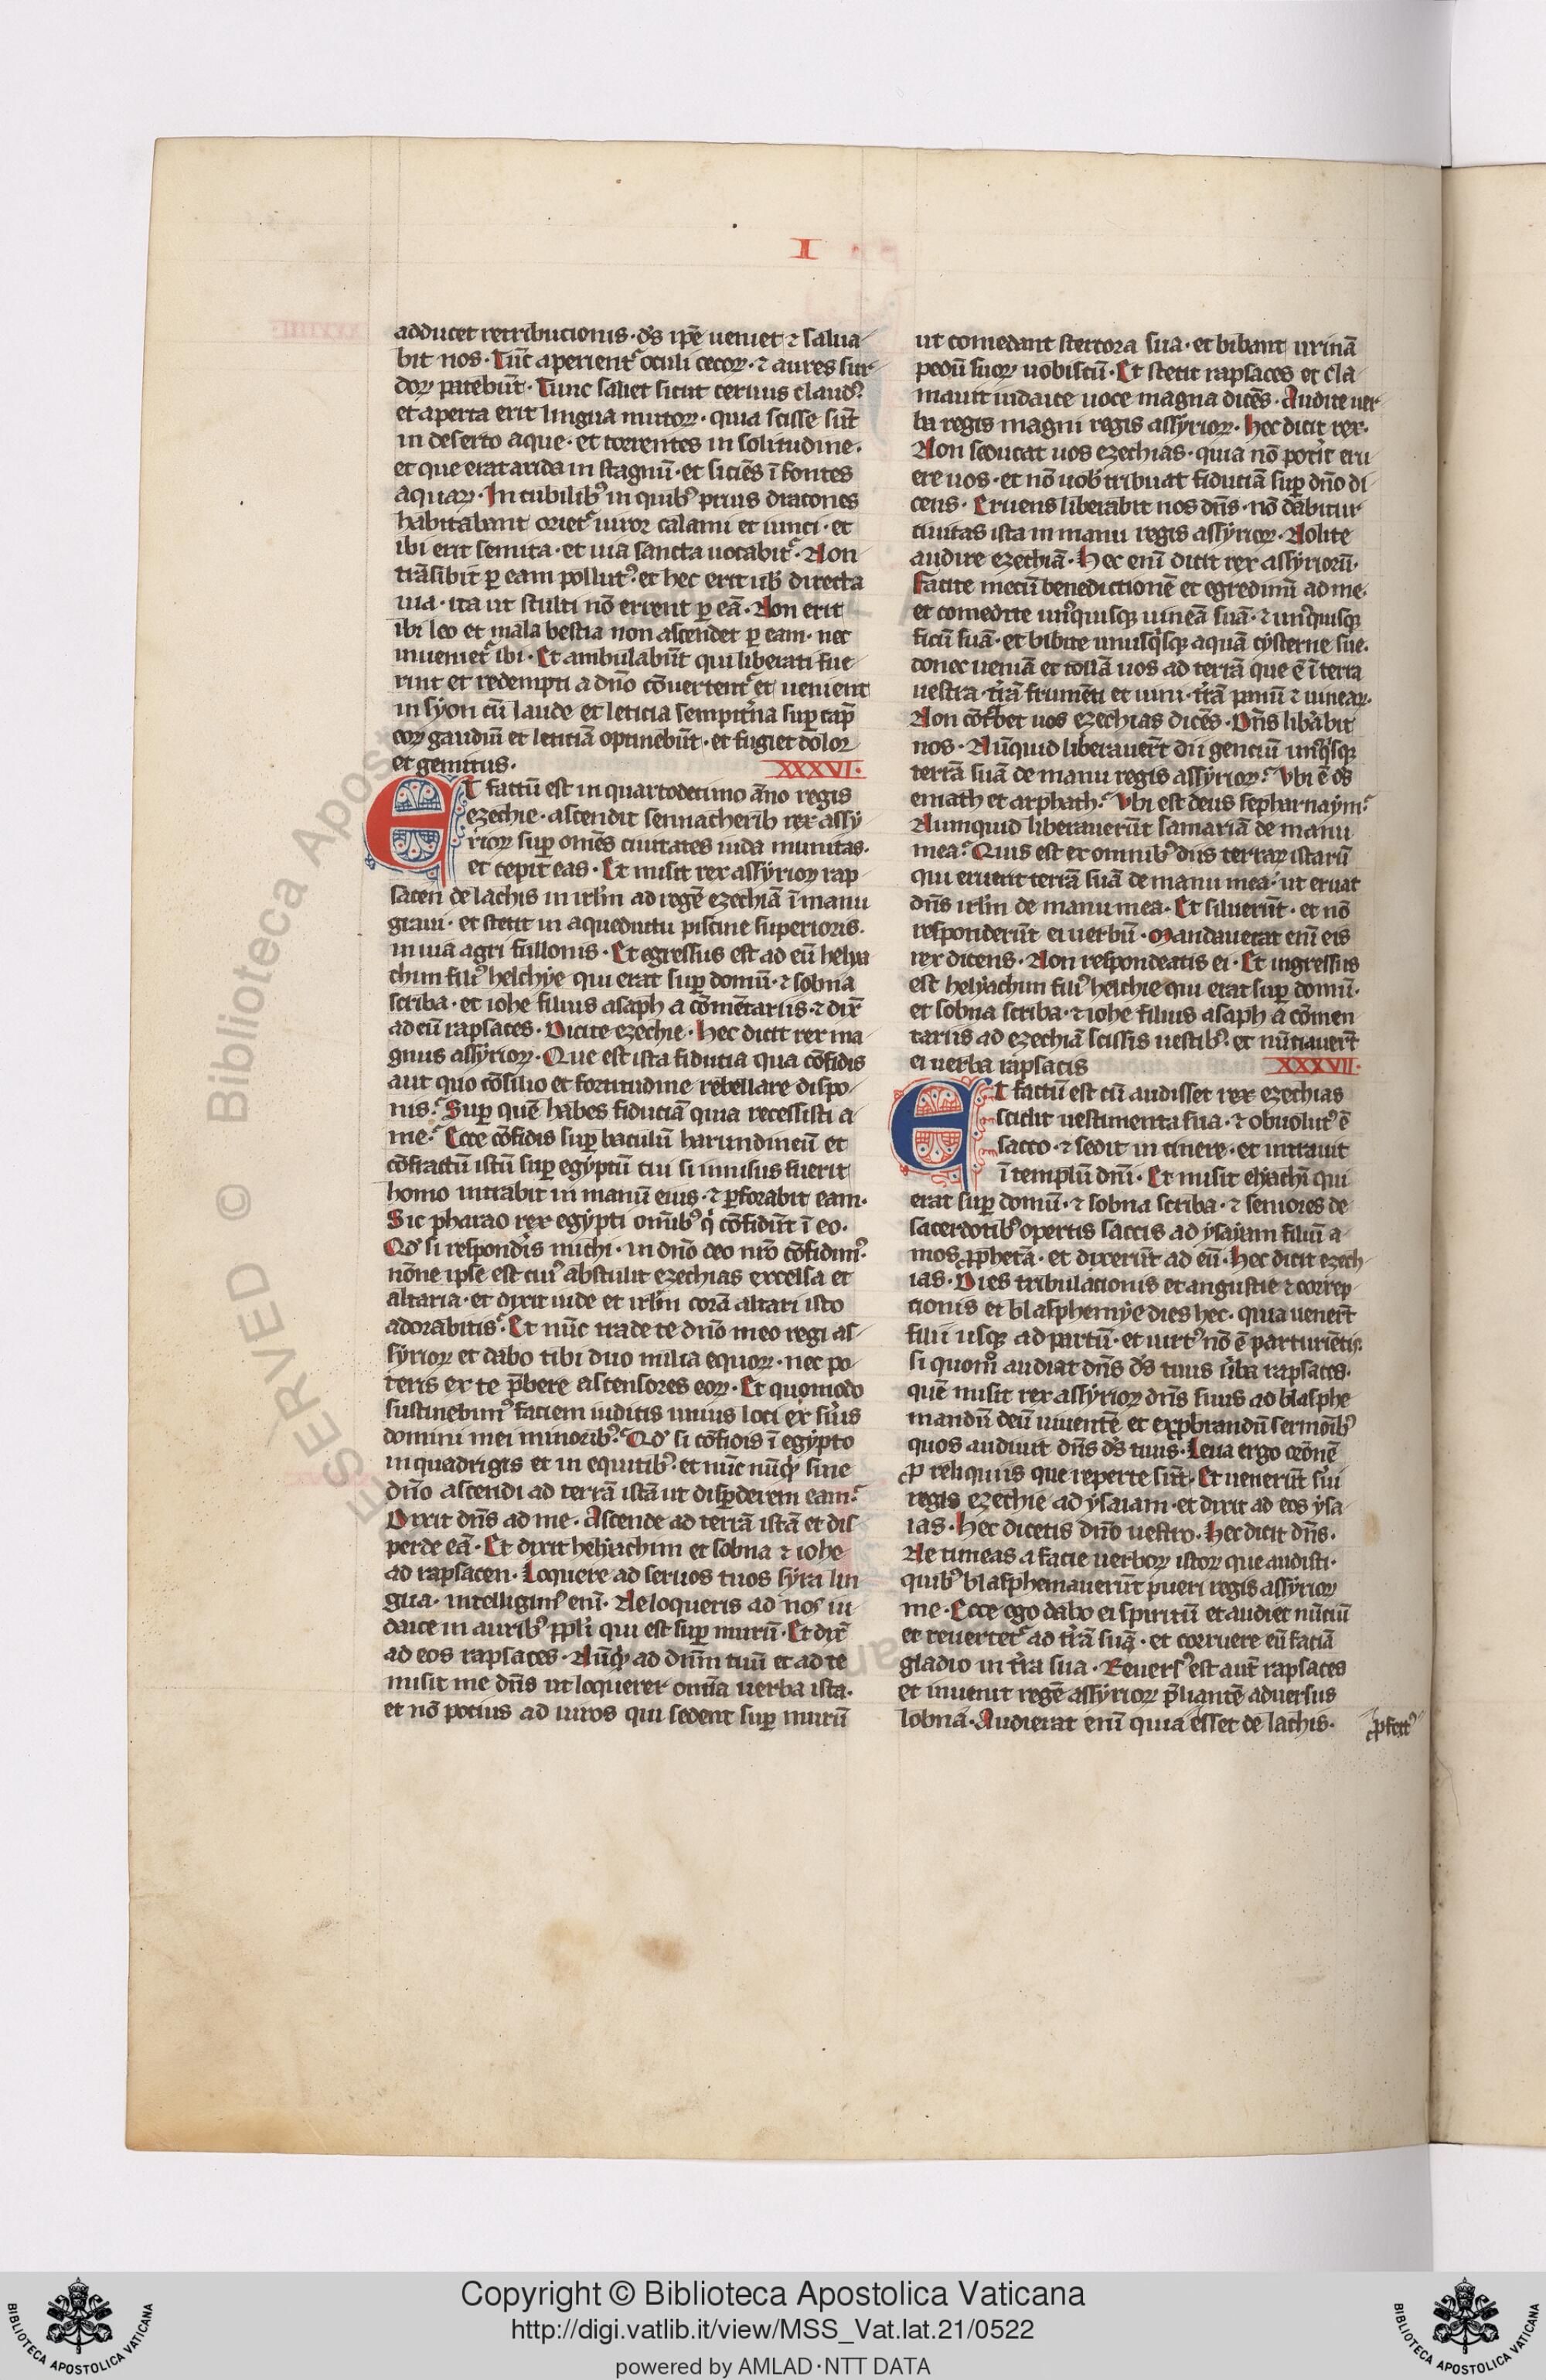 I
adducet retribucionis · dẜ ip̄e ueniet ⁊ salua
bit nos · Tūc aperientᷣ oculi cecoꝝ · ⁊ aures sur
doꝝ patebūt · Tunc saliet sicut ceruus claudꝰ
et aperta erit lingua mutoꝝ · quia scisse sūt
in deserto aque · et torrentes in solitudine ·
et que erat arida in stagnū · et siciēs ī fontes
aquaꝝ · In cubilibꝰ in quibꝰ prius dracones
habitabant orietᷣ uiror calami et iunci · et
ibi erit semita · et uia sancta uocabitᷣ · Non
trāsibit ꝑ eam pollutꝰ · et hec erit uob̄ directa
uia · ita ut stulti nō errent ꝑ eā · Non erit
ibi leo et mala bestia non ascendet ꝑ eam · nec
inuenietᷣ ibi · Et ambulabūt qui liberati fue
rint et redempti a dn̄o cōuertentᷣ et uenient
in syon cū laude et leticia sempitⁱna suꝑ cap̄
eoꝝ gaudiū et leticiā optinebūt · et fugiet dolor
et gemitus · XXXVI ·
Et factū est in quartodecimo āno regis
ezechie · ascendit sennacherib rex assy
rioꝝ suꝑ omēs ciuitates iuda munitas ·
et cepit eas · Et misit rex assyrioꝝ rap
sacen de lachis in irl̄m ad regē ezechiā ī manu
graui · et stetit in aqueductu piscine superioris ·
in uia agri fullonis · Et egressus est ad eū helya
chim filiꝰ helchye qui erat suꝑ domū · ⁊ sobna
scriba · et iohe filius asaph a cōmētariis · ⁊ dix̄
ad eū rapsaces · Dicite ezechie · Hec dicit rex ma
gnus assyrioꝝ · Que est ista fiducia qua cōfidis
aut quo cōsilio et fortitudine rebellare dispo
nis · Suꝑ quē habes fiduciā quia recessisti a
me · Ecce cōfidis suꝑ baculū harundineū et
cōfractū istū suꝑ egyptū cui si innisus fuerit
homo intrabit in manū eius · ⁊ ꝑforabit eam ·
Sic pharao rex egypti omībꝰ qⁱ cōfidūt ī eo ·
Qd̓ si respondⁱis michi · in dn̄o deo nrō cōfidimꝰ
nōne ipse est cuiꝰ abstulit ezechias excelsa et
altaria · et dixit iude et irl̄m corā altari isto
adorabitis · Et nūc trade te dn̄o meo regi as
syrioꝝ et dabo tibi duo milia equoꝝ · nec po
teris ex te p̄bere ascensores eoꝝ · Et quomodo
sustinebimꝰ faciem iudicis unius loci ex sⁱuis
domini mei minoribꝰ · Qd̓ si cōfidis ī egypto
in quadrigis et in equitibꝰ · et nūc nūqᷓ sine
dn̄o ascendi ad terrā istā ut disꝑderem eam ·
Dixit dn̄s ad me · Ascende ad terrā istā et dis
perde eā · Et dixit helyachim et sobna ⁊ iohe
ad rapsacen · Loquere ad seruos tuos syra lin
gua · intelligimꝰ enī · Ne loqueris ad nos iu
daice in auribꝰ pp̄li qui est suꝑ murū · Et dix̄
ad eos rapsaces · Nūqᷓ ad dn̄m tuū et ad te
misit me dn̄s ut loquerer omīa uerba ista ·
et nō potius ad uiros qui sedent suꝑ murū
ut comedant stercora sua · et bibant urinā
pedū suoꝝ uobiscū · Et stetit rapsaces et cla
mauit iudaice uoce magna dicēs · Audite uer
ba regis magni regis assyrioꝝ · Hec dicit rex ·
Non seducat uos ezechias · quia nō potⁱit eru
ere uos · et nō uob̄ tribuat fiduciā suꝑ dn̄o di
cens · Eruens liberabit nos dn̄s · nō dabitur
ciuitas ista in manu regis assyrioꝝ · Nolite
audire ezechiā · Hec enī dicit rex assyriorū ·
Facite mecū benedictionē et egredimī ad me ·
et comedite unꝰquisqꝫ uineā suā · ⁊ unꝰquisqꝫ
ficū suā · et bibite unusqⁱsqꝫ aquā cysterne sue ·
donec ueniā et tollā uos ad terrā que ē ī terra
uestra · tⁱrā frumēti et uini · tⁱrā panū ⁊ uineaꝝ ·
Non cōtⁱbet uos ezechias dicēs · Dn̄s libⁱabit
nos · Nūquid liberauer̄t dii genciū unꝰqⁱsqꝫ
terrā suā de manu regis assyrioꝝ · Vbi ē dẜ
emath et arphath · Vbi est deus sepharnaym ·
Numquid liberauerūt samariā de manu
mea · Quis est ex omnibꝰ diis terraꝝ istarū
qui eruerit terrā suā de manu mea · ut eruat
dn̄s irl̄m de manu mea · Et siluerūt · et nō
responderūt ei uerbū · Mandauerat enī eis
rex dicens · Non respondeatis ei · Et ingressus
est helyachim filiꝰ helchie qui erat suꝑ domū ·
et sobna scriba · ⁊ iohe filius asaph a cōmen
tariis ad ezechiā scissis uestibꝰ · et nūtiauer̄t
ei uerba rapsacis XXXVII ·
Et factū est cū audisset rex ezechias
scidit uestimenta sua · ⁊ obuolutꝰ ē
sacco · ⁊ sedit in cinere · et intrauit
ī templū dn̄i · Et misit elyachī qui
erat suꝑ domū · ⁊ sobna scriba · ⁊ seniores de
sacerdotibꝰ opertis saccis ad ysayam filiū a
mos ꝓphetā · et dixerūt ad eū · Hec dicit ezech
ias · Dies tribulacionis et angustie ⁊ correp
cionis et blasphemye dies hec · quia uener̄t
filii usqꝫ ad partū · et uirtꝰ nō ē parturiētis ·
si quomº audiat dn̄s dẜ tuus uⁱba rapsaces ·
quē misit rex assyrioꝝ dn̄s suus ad blasphe
mandū deū uiuentē et exprobrandū sermōibꝰ
quos audiuit dn̄s dẜ tuus · Leua ergo orōnē
ꝓ reliquiis que reperte sūt · Et uenerūt sⁱui
regis ezechie ad ysaiam · et dixit ad eos ysa
ias · Hec dicetis dn̄o uestro · Hec dicit dn̄s ·
Ne timeas a facie uerboꝝ istoꝝ que audisti ·
quibꝰ blasphemauerūt pueri regis assyrioꝝ
me · Ecce ego dabo ei spiritū et audiet nūciū
et reuertetᷣ ad tⁱrā suā · et corruere eū faciā
gladio in tⁱra sua · Reuersꝰ est aut̄ rapsaces
et inuenit regē assyrioꝝ p̄liantē aduersus
lobna · Audierat enī quia esset de lachis ·
Copyright © Biblioteca Apostolica Vaticana
http://digi.vatlib.it/view/MSS_Vat.lat.21/0522
powered by AMLAD·NTT DATA
BIBLIOTECA APOSTOLICA VATICANA
BIBLIOTECA APOSTOLICA VATICANA